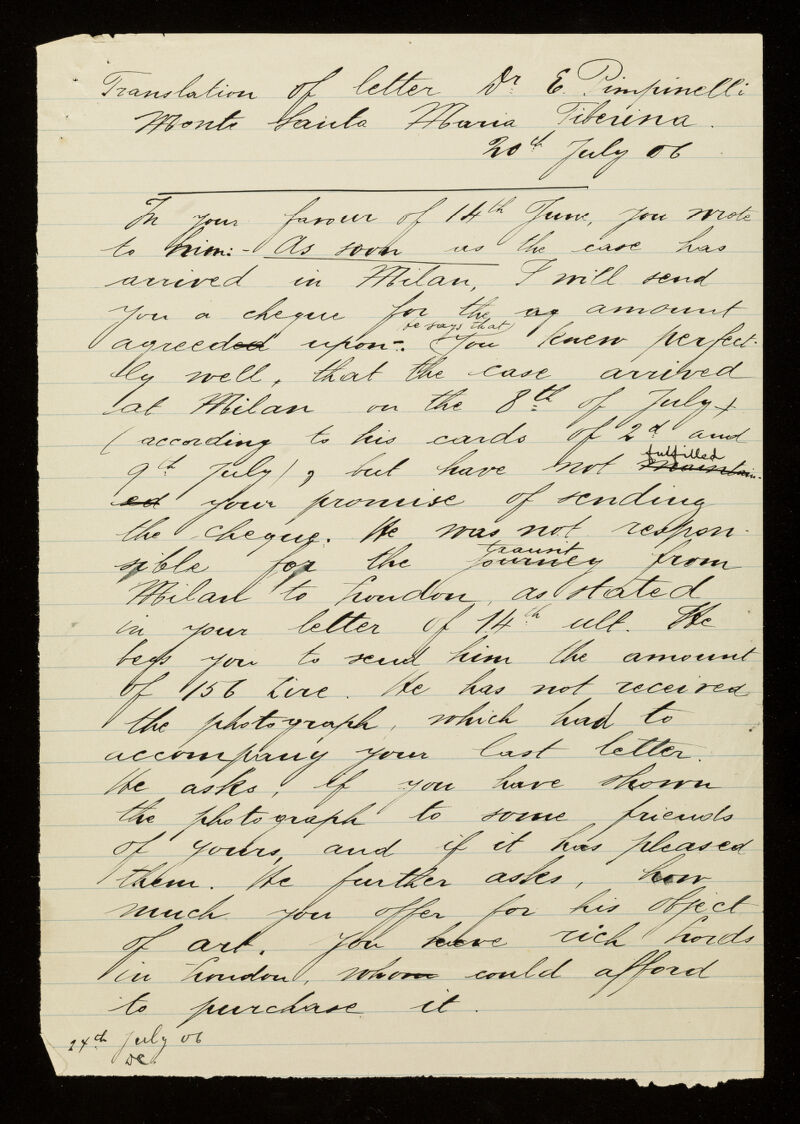 Translation of letter Dr. E. Pimpinelli
Monte Santa Maria Tiberina.
20th July 06
In your favour of 14th June, you wrote
to him:- As soon as the case has
arrived in Milan, I will send
you a cheque for the ag amount
agreeded upon-. he says that You knew perfect-
ly well, that the case arrived
at Milan on the 8th of July
(according to his cards of 2d and
9th July), but have not maintain- fulfilled
ed your promise of sending
the cheque. He was not respon-
sible for the journey transit from
Milan to London, as stated
in your letter of 14th ult. He
begs you to send him the amount
of 156 Lire. He has not received
the photograph, which had to
accompany your last letter.
He asks, if you have shown
the photograph to some friends
of yours, and if it has pleased
them. He further asks, how
much you offer for his object
of art. You have rich Lords
in London, whom could afford
to purchase it.
24th July 06